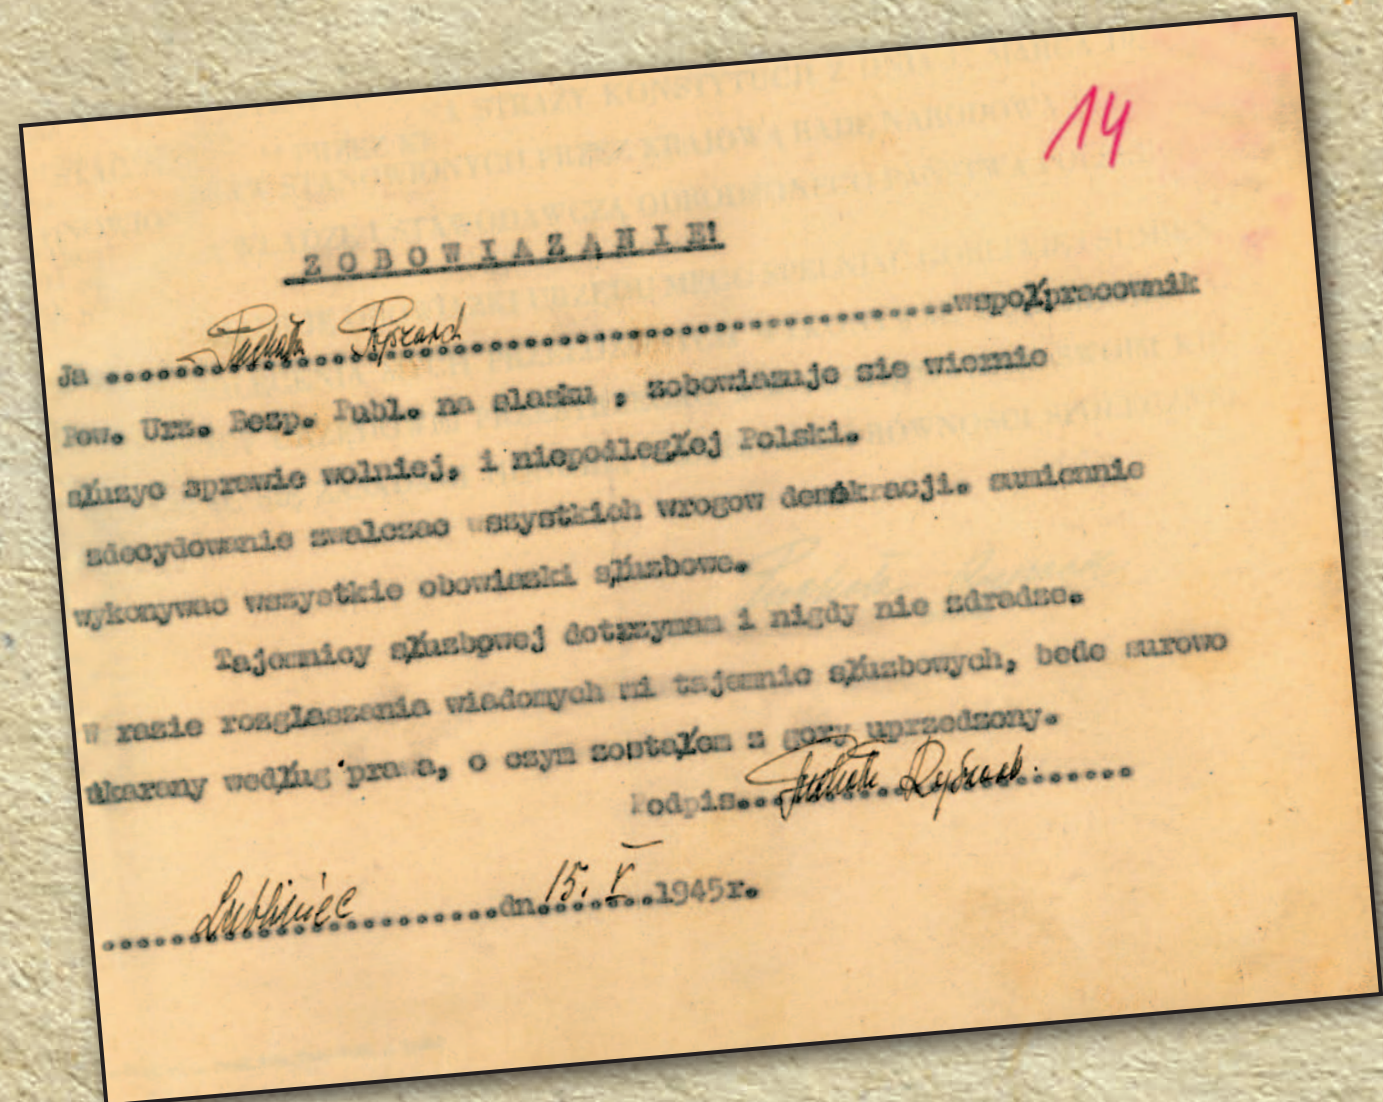 14
ZOBOWIAZANIE!
Ja ........................................wspołpracownik
Pow. Urz. Bezp. Publ. na slasku , zobowiazuje sie wiernie
służyc sprawie wolniej, i niepodległej Polski.
zdecydowanie zwalczac wszystkich wrogow demokracji. sumiennie
wykonywac wszystkie obowiazki służbowe.
Tajemnicy służbowej dotrzymam i nigdy nie zdradze.
W razie rozglaszania wiadomych mi tajemnic służbowych, bede surowo
ukarany według prawa, o czym zostałem z gory uprzedzony.
Podpis...
Lubliniec dn. 15. V 1945r.